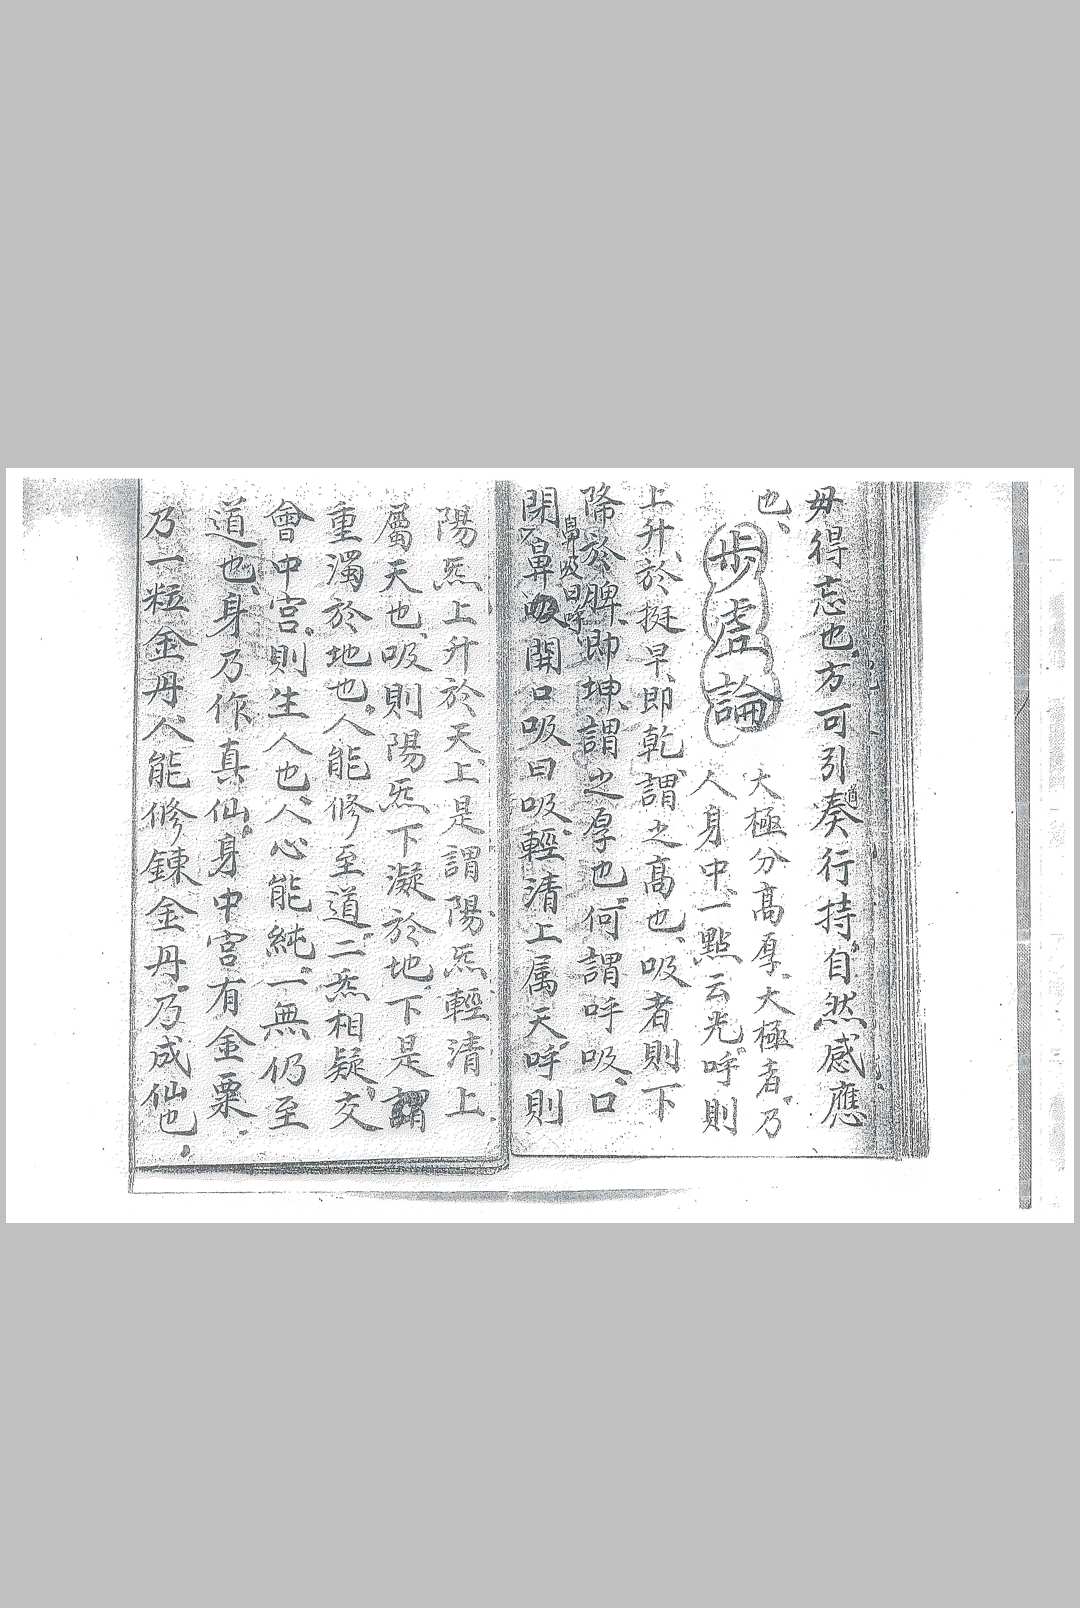 毋得忘也方可引奏行持自然感應
道
也、
步虛論
大極分高厚、大極者、乃
人身中、一點云光、呼則
上升、於挺早、即乾、謂之高也、吸者則下
降於脾、即坤、謂之厚也、何謂呼吸、口
鼻吸曰呼
閉又鼻吸開口吸曰吸、輕清上属天、呼則
陽炁上升於天上、是謂陽炁輕清上
屬天也、吸則陽炁下凝於地下、是謂
重濁於地也、人能修至道、二炁相凝、交
會中宮、則生人也、人心能純一、無仍至
道也、身乃作真仙、身中宮有金粟、
乃一粒金丹、人能修鍊金丹、乃成仙也、